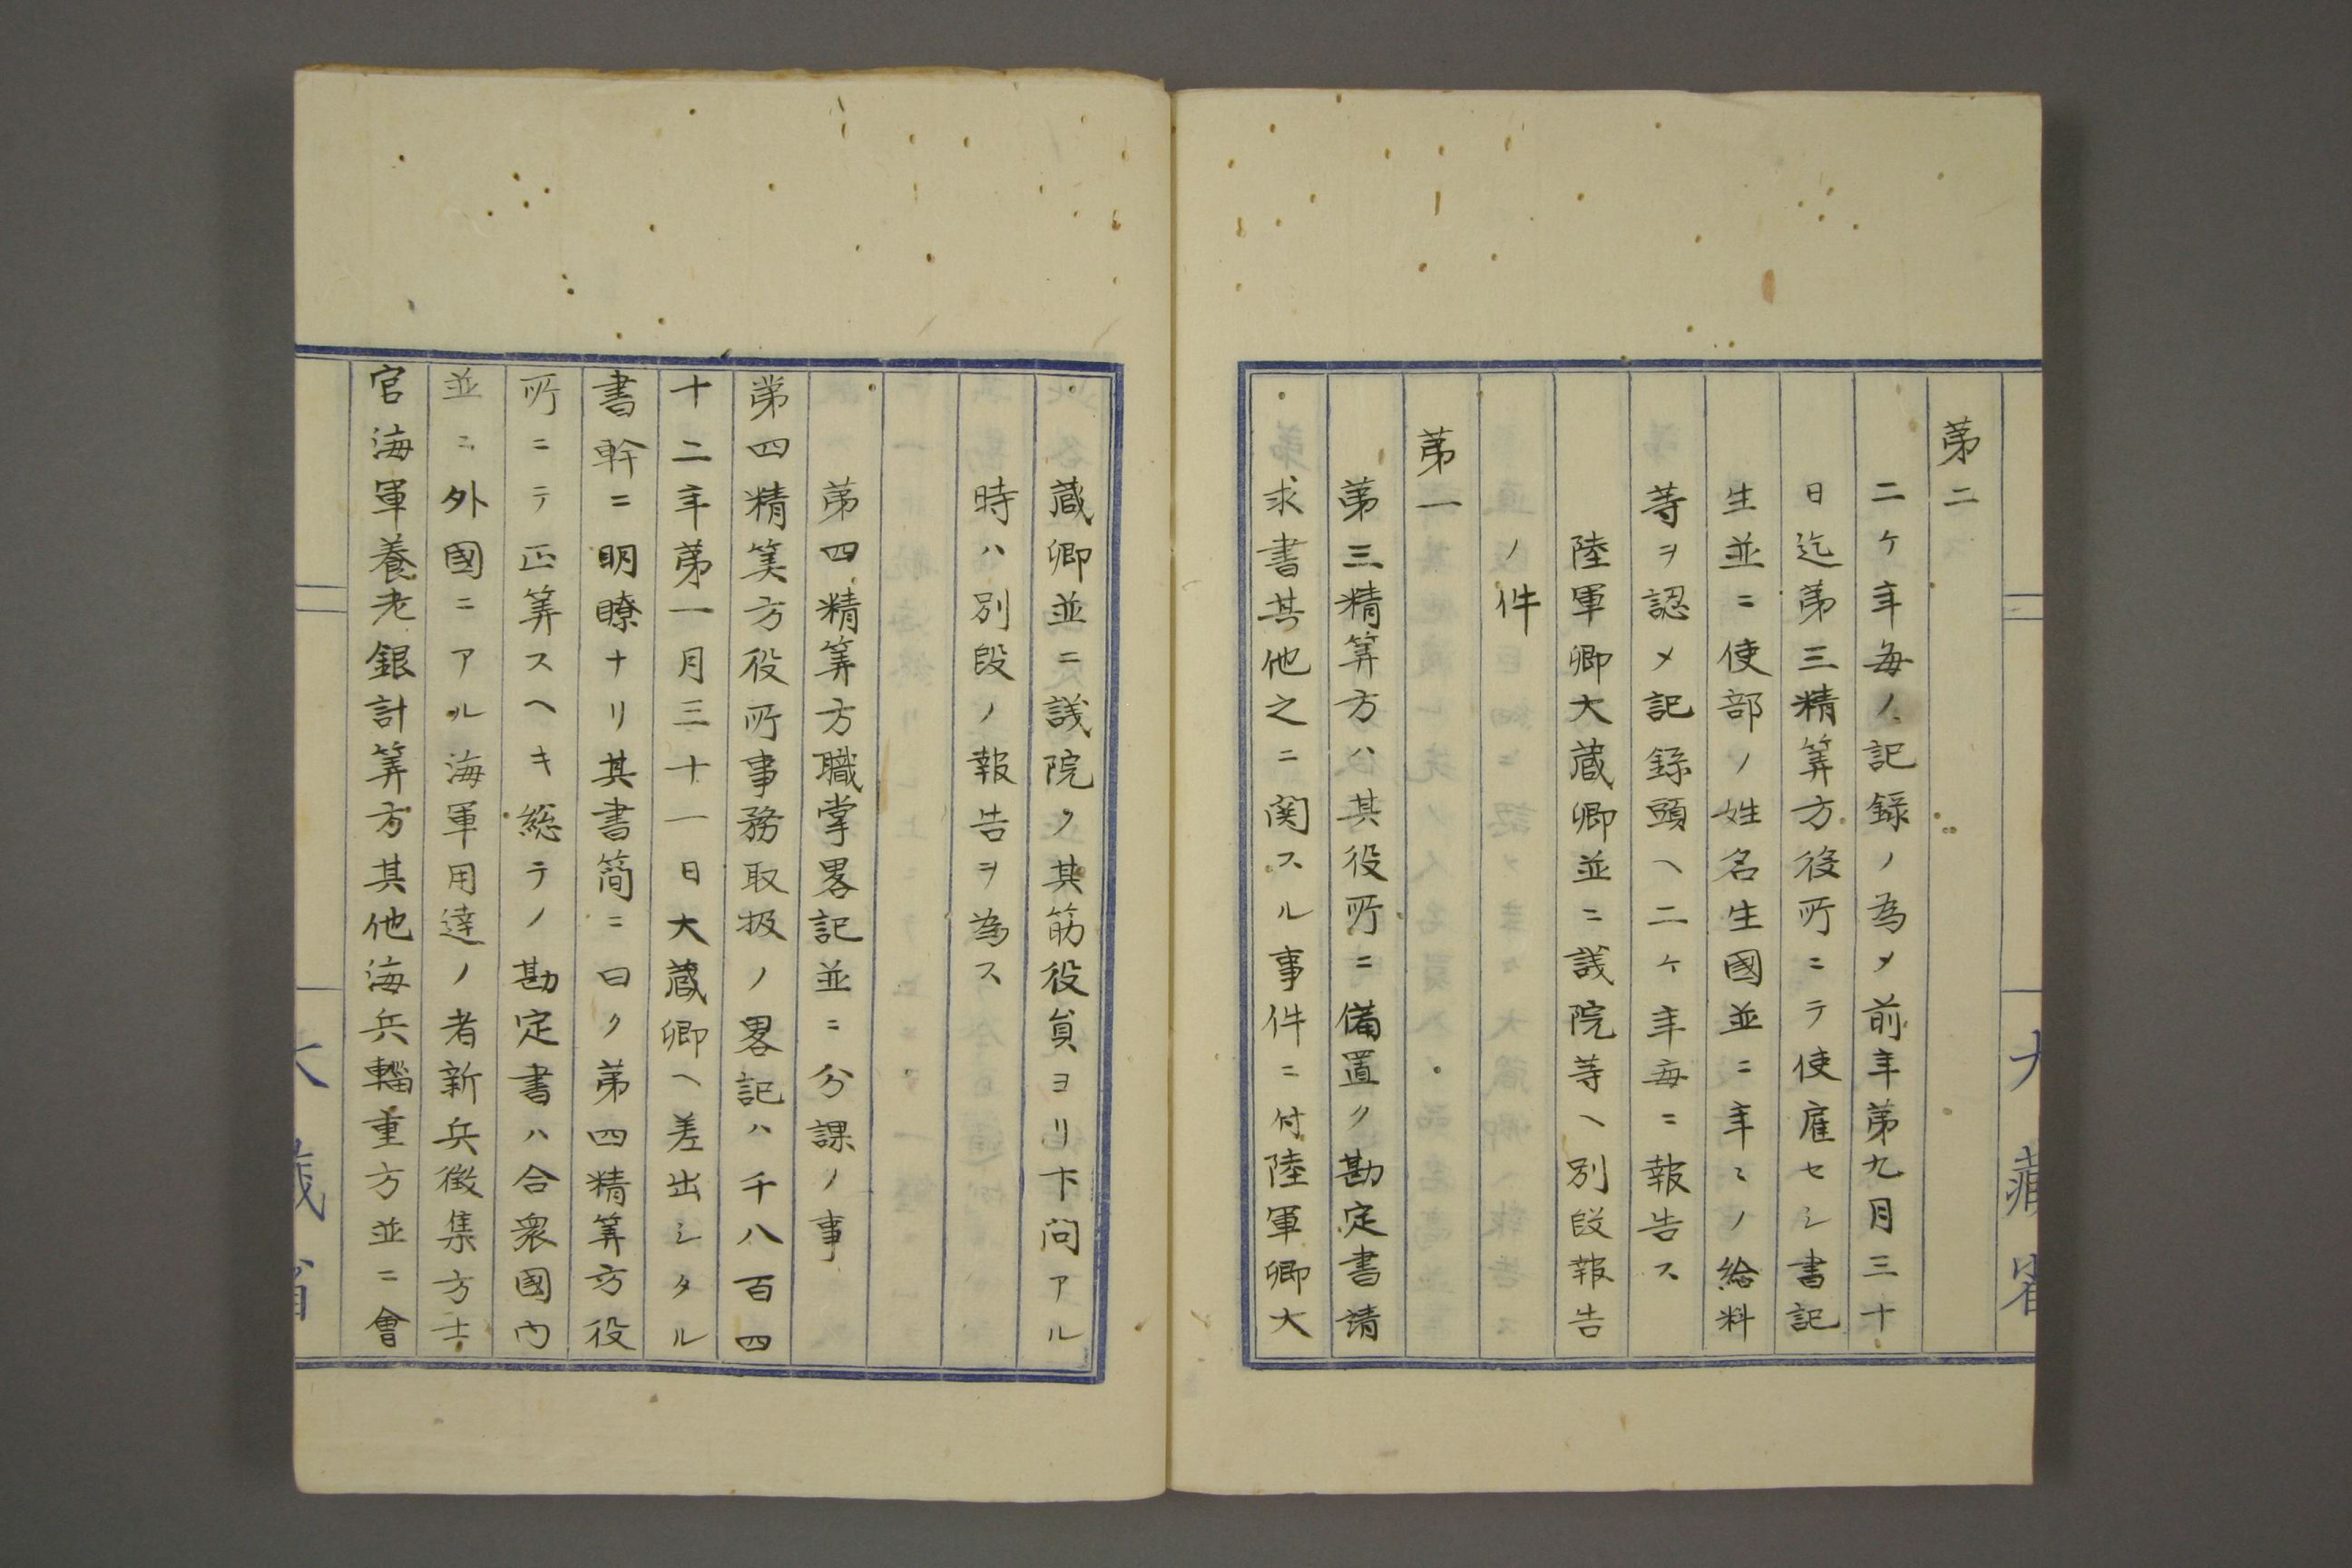 第二
二ケ年毎ノ記録ノ為メ前年第九月三十
日迄第三精算方役所ニテ使雇セシ書記
生並ニ使部ノ姓名生國並ニ年々ノ給料
等ヲ認メ記録頭ヘ二ケ年毎ニ報告ス
陸軍卿大蔵卿並ニ議院等ヘ別段報告
ノ件
第一
第三精算方ハ其役所ニ備置ク勘定書請
求書其他之ニ関スル事件ニ付陸軍卿大
大藏省
蔵卿並ニ議院ク其筋役員ヨリ下問アル
時ハ別段ノ報告ヲ為ス
第四精算方職掌畧記並ニ分課ノ事
第四精算方役所事務取扱ノ畧記ハ千八百四
十二年第一月三十一日大蔵卿ヘ差出シタル
書幹ニ明瞭ナリ其書簡ニ曰ク第四精算方役
所ニテ正算スヘキ総テノ勘定書ハ合衆國内
並ニ外國ニアル海軍用達ノ者新兵徴集方士
官海軍養老銀計算方其他海兵輜重方並ニ會